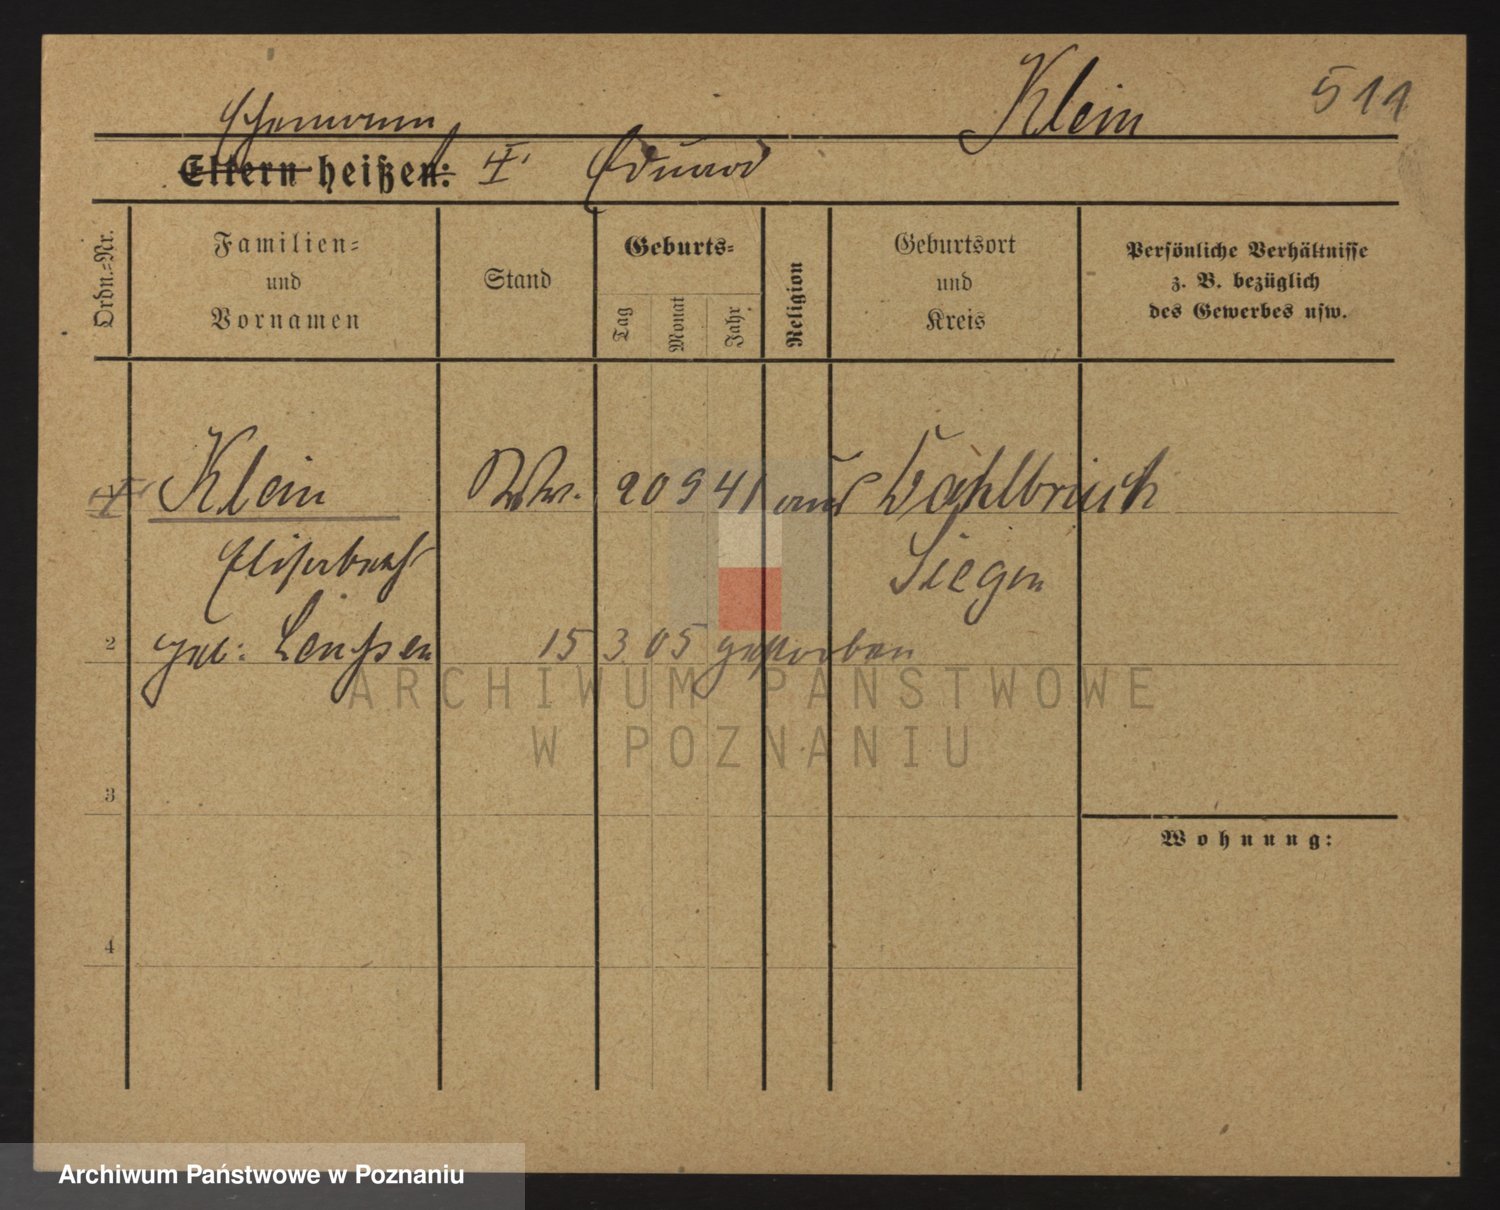 Klein 511
Ehemann
Eltern heißen: Eduard
Ordn.=Nr.
Familien=
und
Vornamen
Stand
Geburts=
Tag
Monat
Jahr
Religion
Geburtsort
und
Kreis
Persönliche Verhältnisse
z. B. bezüglich
des Gewerbes usw.
Klein Ww. 20 9 41 aus Wahlbruch
Elisabeth Siegen
2 geb: 15 3 05 gestorben
3
Wohnung:
4
ARCHIWUM PAŃSTWOWE
W POZNANIU
Archiwum Państwowe w Poznaniu